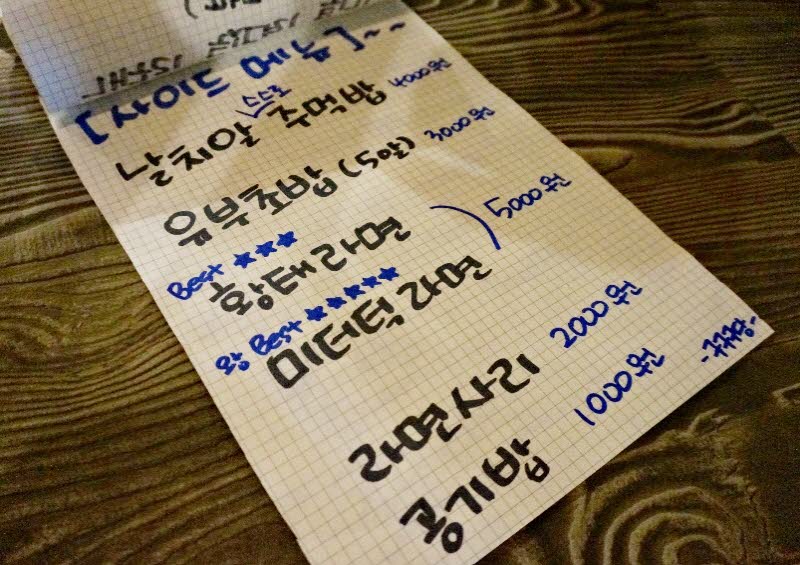 [사이드 메뉴]~~
날치알 스스로 주먹밥 4000원
유부초밥 (5알) 3000원
Best ★★★
황태라면
왕 Best ★★★★★
미더덕라면
5000원
라면사리 2000원
공기밥 1000원
-쿠쿠당-